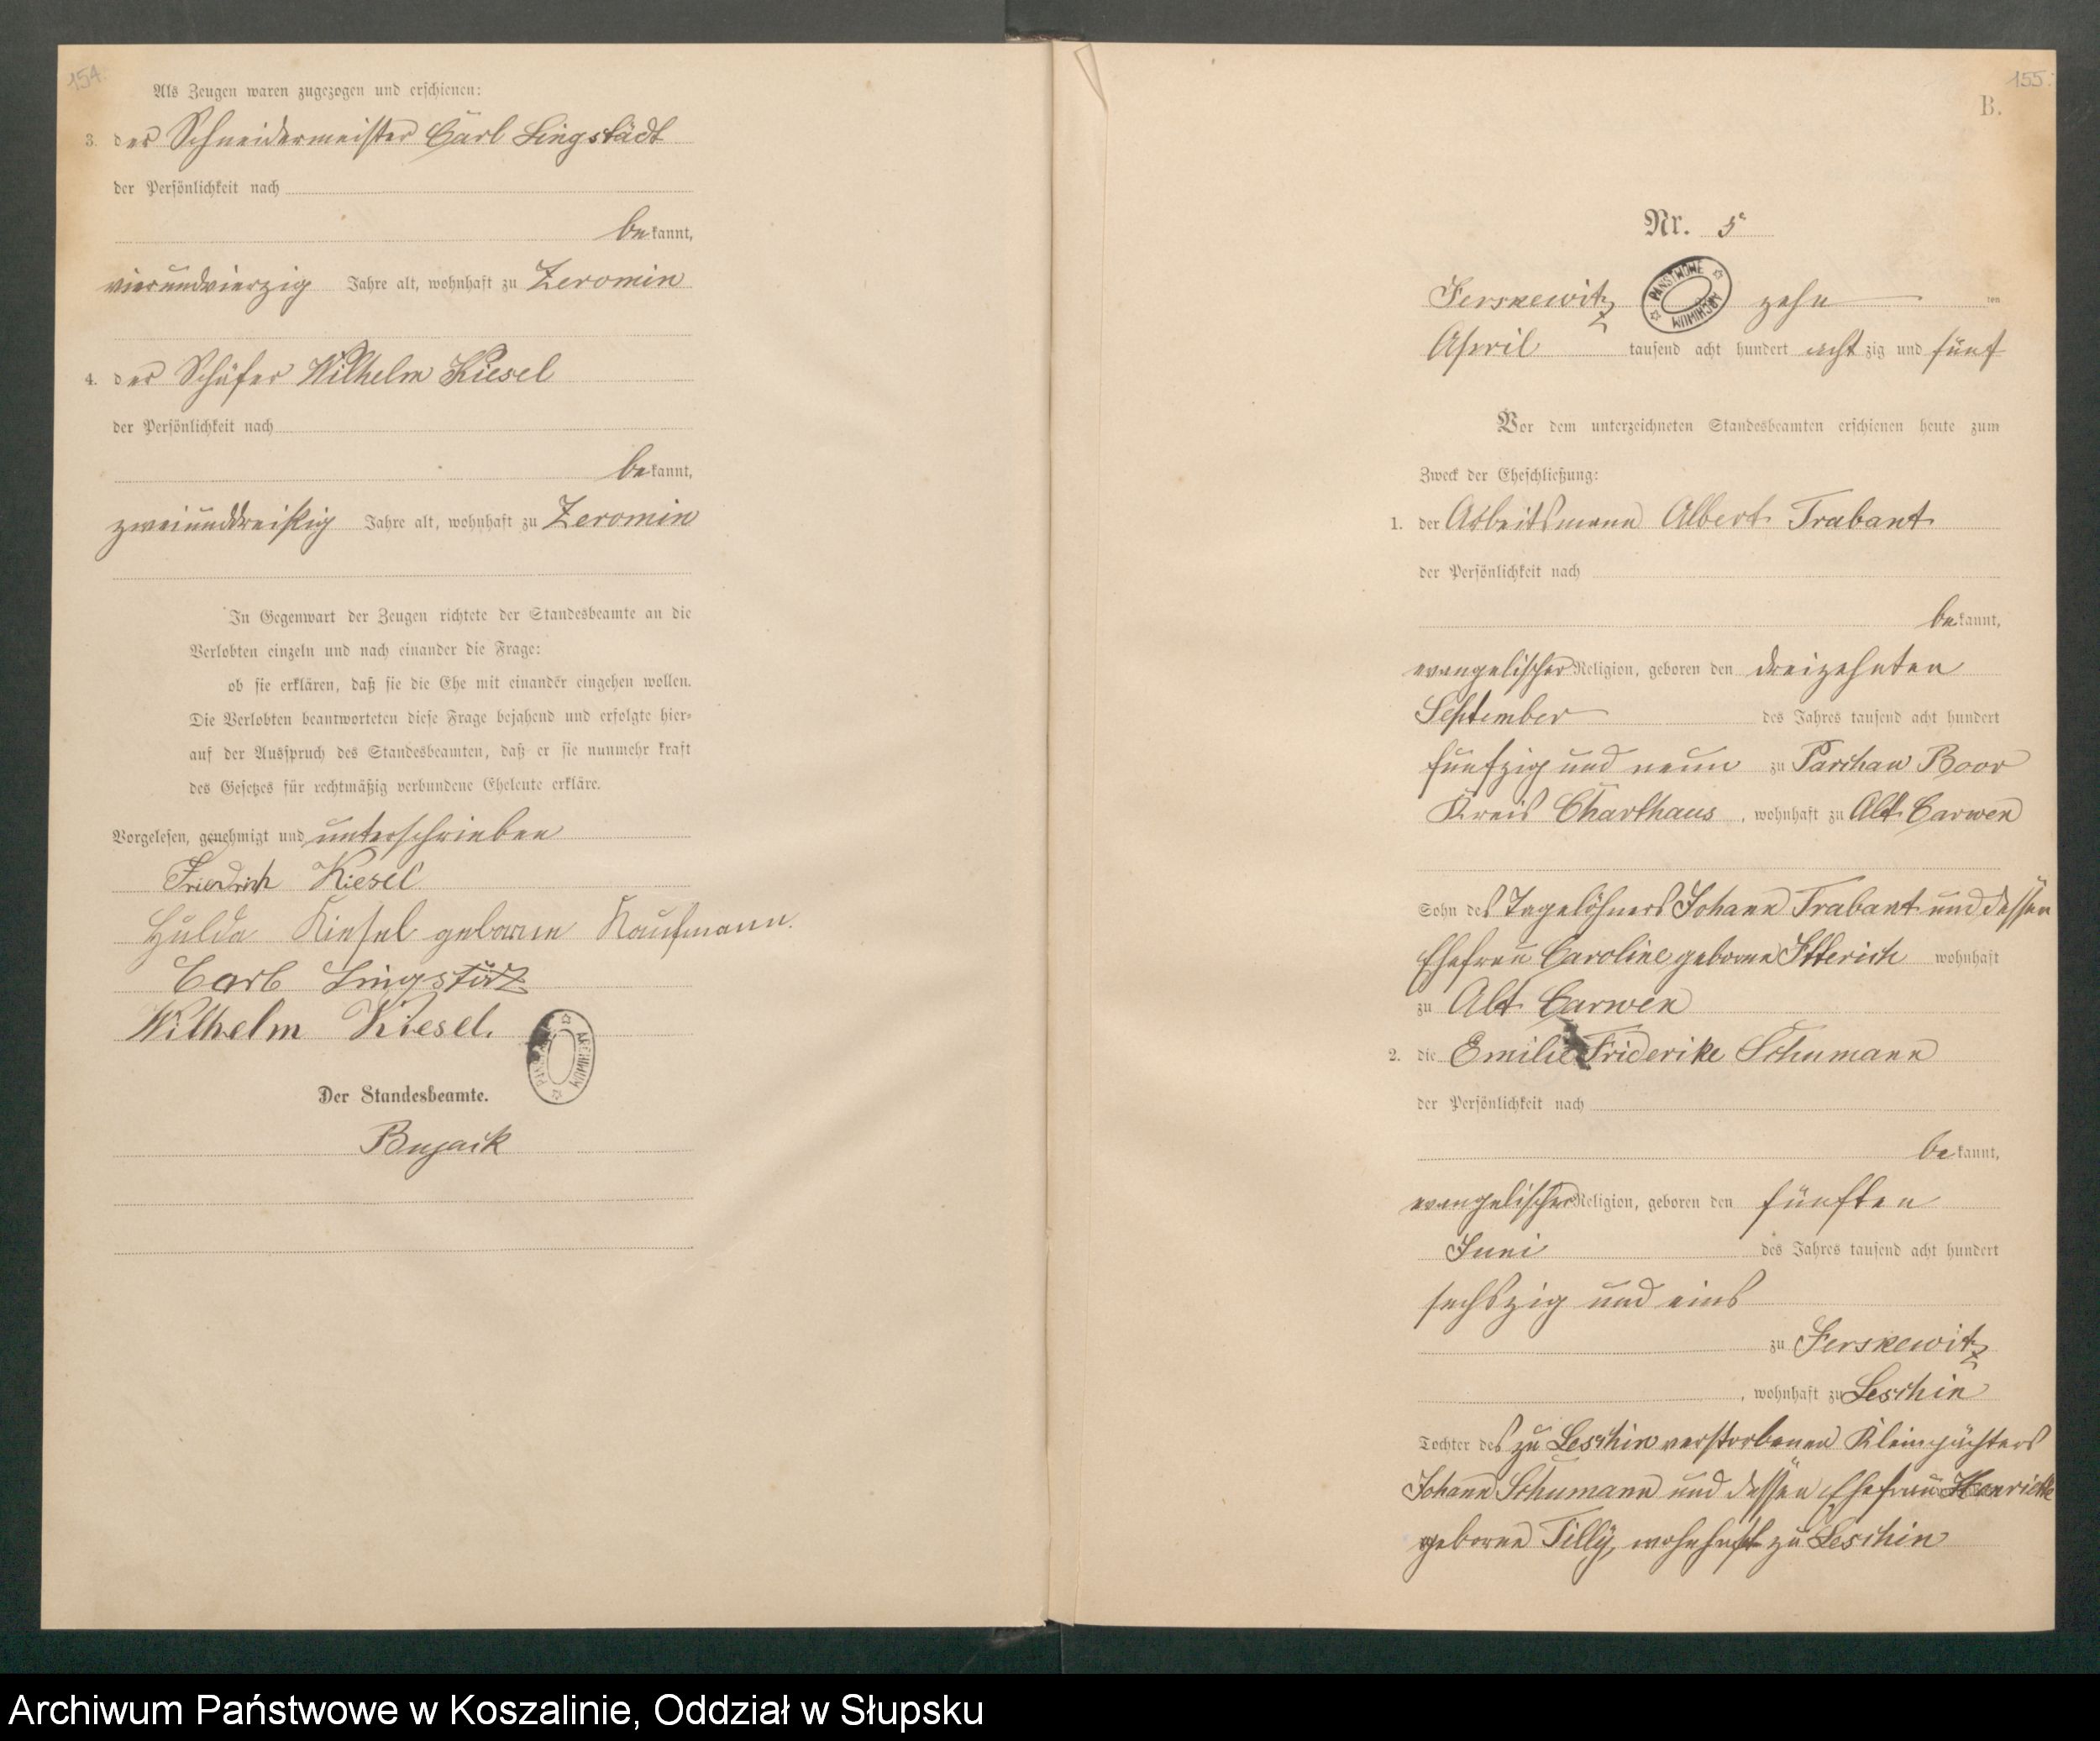 154.
Als Zeugen waren zugezogen und erschienen:
3. der Schneidermeister Carl Lingstädt
der Persönlichkeit nach
bekannt,
vierundvierzig Jahre alt, wohnhaft zu Zeromin
4. der Schäfer Wilhelm Kiesel
der Persönlichkeit nach
bekannt,
zweiunddreißig Jahre alt, wohnhaft zu Zeromin
In Gegenwart der Zeugen richtete der Standesbeamte an die
Verlobten einzeln und nach einander die Frage:
ob sie erklären, daß sie die Ehe mit einander eingehen wollen.
Die Verlobten beantworteten diese Frage bejahend und erfolgte hier-
auf der Ausspruch des Standesbeamten, daß er sie nunmehr kraft
des Gesetzes für rechtmäßig verbundene Eheleute erkläre.
Vorgelesen, genehmigt und unterschrieben
Friedrich Kiesel
Hulda Kiesel geborene Kaufmann.
Carl
Wilhelm Kiesel.
ARCHIWUM
Der Standesbeamte.
Bujack
155.
B.
Nr. 5
Ferskewitz zehn ten
PAŃSTWOWE ARCHIWUM
April tausend acht hundert acht zig und fünf
Vor dem unterzeichneten Standesbeamten erschienen heute zum
Zweck der Eheschließung:
1. der Arbeitsmann Albert Trabant
der Persönlichkeit nach
bekannt,
evangelischer Religion, geboren den dreizehnten
September des Jahres tausend acht hundert
fünfzig und neun zu Parchau Boor
Kreis Charthaus, wohnhaft zu Alt Carwen
Sohn des Tagelöhners Johann Trabant und dessen
Ehefrau Caroline geborene wohnhaft
zu Alt Carwen
2. die Emilie Friderike Schumann
der Persönlichkeit nach
bekannt,
evangelischer Religion, geboren den fünften
Juni des Jahres tausend acht hundert
sechszig und eins
zu Ferskewitz
, wohnhaft zu Leschin
Tochter des zu Leschin verstorbenen Kleinpächters
Johann Schumann und dessen Ehefrau Henriette
geborene Tilly, wohnhaft zu Leschin
Archiwum Państwowe w Koszalinie, Oddział w Słupsku